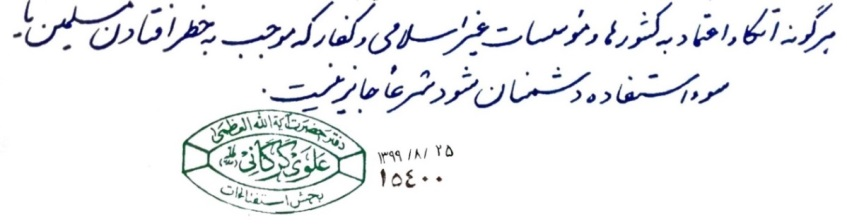 هرگونه اتکاء و اعتماد به کشورها و مؤسسات غیر اسلامی و کفار که موجب به خطر افتادن مسلمین یا
سوء استفاده دشمنان شود شرعاً جایز نیست.
دفتر حضرت آیة الله العظمی
علوی گرگانی
بخش استفتائات
۱۳۹۹/۸/۲۵
۱۵۴۰۰